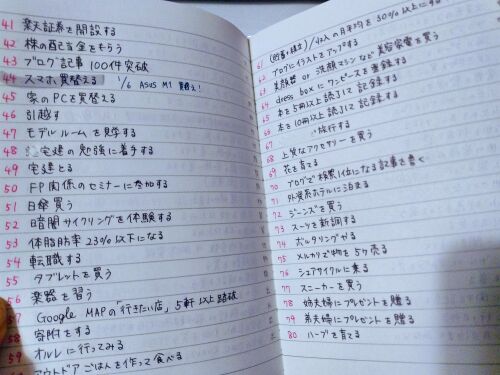 41 楽天証券を開設する
42 株の配当金をもらう
43 ブログ記事 100件突破
44 スマホ買替える 1/6 ASUS M1 買替え!
45 家のPCを買替える
46 引越す
47 モデルルームを見学する
48 宅建の勉強に着手する
49 宅建とる
50 FP関係のセミナーに参加する
51 日傘買う
52 暗闇サイクリングを体験する
53 体脂肪率23%以下になる
54 転職する
55 タブレットを買う
56 楽器を習う
57 Google MAPの「行きたい店」5軒以上踏破
58 寄附をする
59 オルレに行ってみる
アウトドアごはんを作って食べる
61 /収入の月平均を30%以上にする
62 ブログにイラストをアップする
63 美顔器 or 洗顔マシンなど美容家電を買う
64 dress boxにワンピースを登録する
65 本を5冊以上読了に記録する
66 本を10冊以上読了に記録する
67 旅行する
68 上質なアクセサリーを買う
69 花を育てる
70 ブログで検索1位になる記事を書く
71 外資系ホテルに泊まる
72 ジーンズを買う
73 スーツを新調する
74 ボルダリングやる
75 メルカリで物を5ヶ売る
76 シェアサイクルに乗る
77 スニーカーを買う
78 姉夫婦にプレゼントを贈る
79 弟夫婦にプレゼントを贈る
80 ハーブを育てる